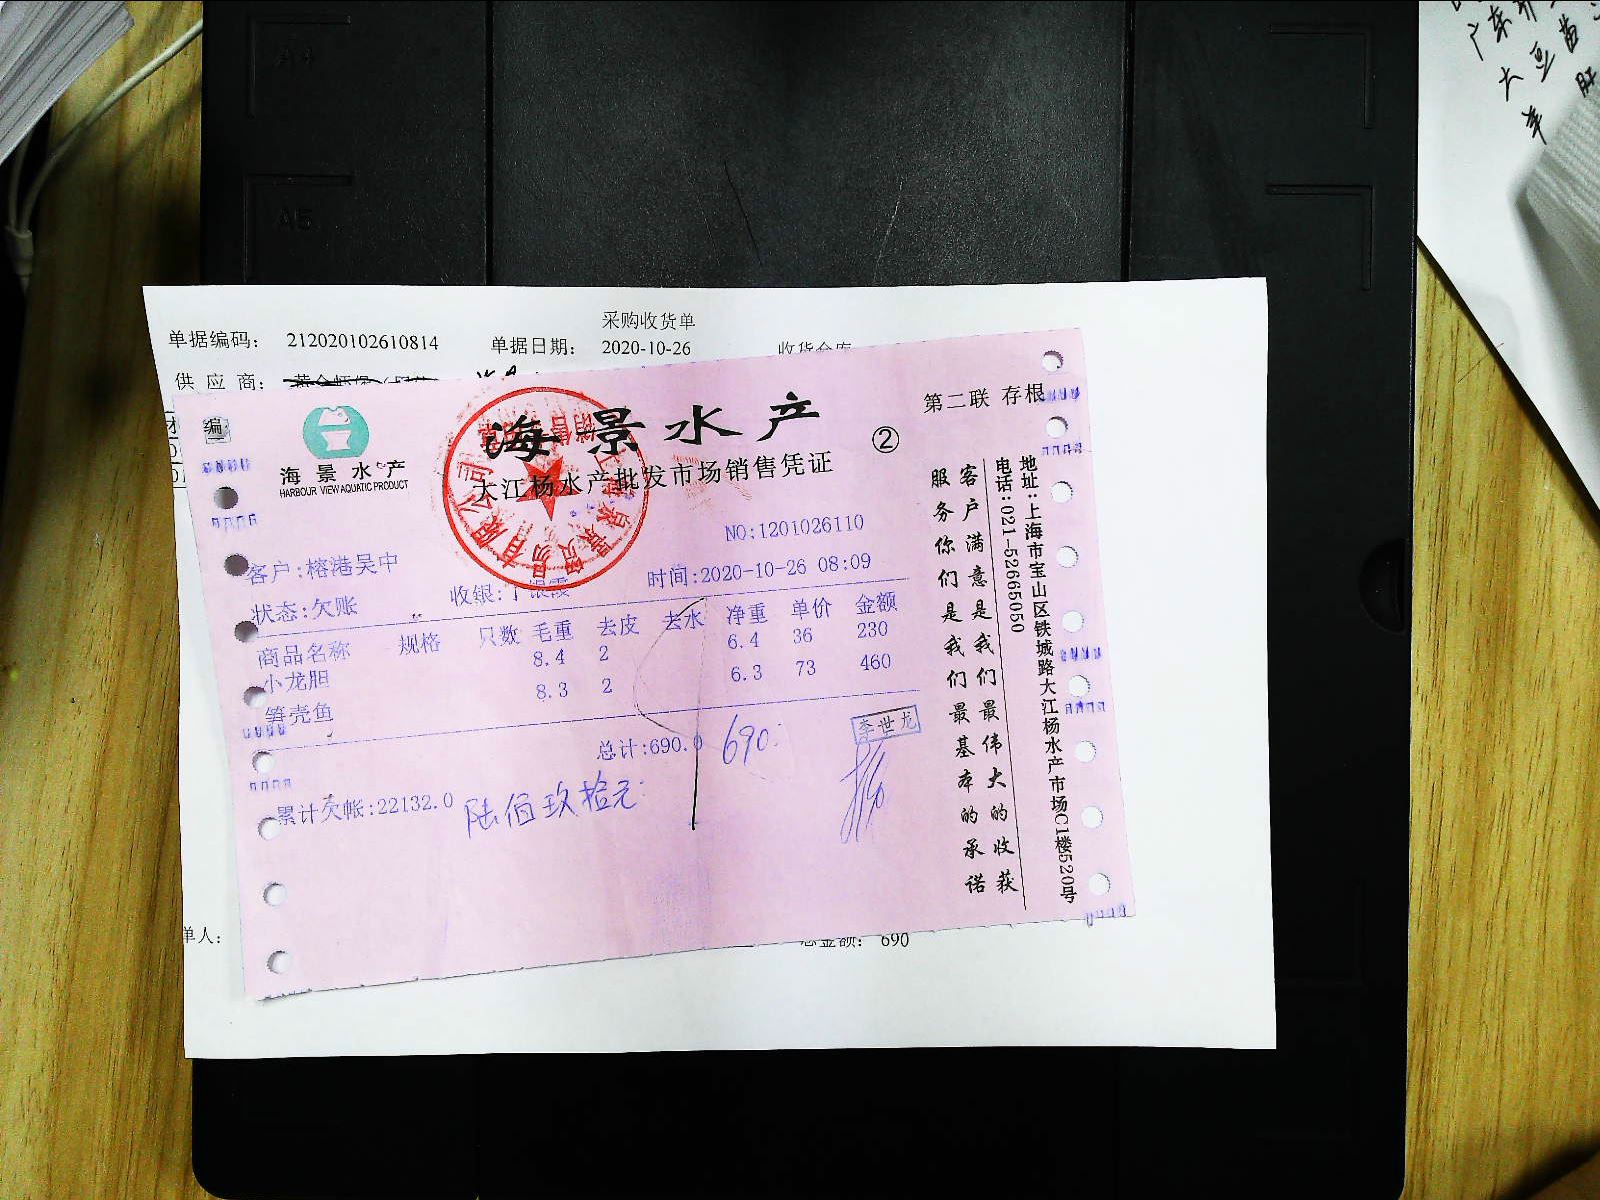 采购收货单
单据编码： 212020102610814 单据日期： 2020-10-26
供 应 商：
海景水产
HARBOUR VIEW AQUATIC PRODUCT
海景水产
大江杨水产批发市场销售凭证
②
第二联 存根
NO:1201026110
客户:榕港吴中
状态:欠账
收银:
时间:2020-10-26 08:09
商品名称 规格 只数 毛重 去皮 去水 净重 单价 金额
小龙胆 8.4 2 6.4 36 230
笋壳鱼 8.3 2 6.3 73 460
总计:690.0
690.
李世龙
累计欠帐:22132.0
陆佰玖拾元
客户满意是我们最伟大的收获
服务你们是我们最基本的承诺
地址:上海市宝山区铁城路大江杨水产市场C1楼520号
电话:021-52665050
单人：
总金额： 690
A4
A5
大豆苗
羊肚